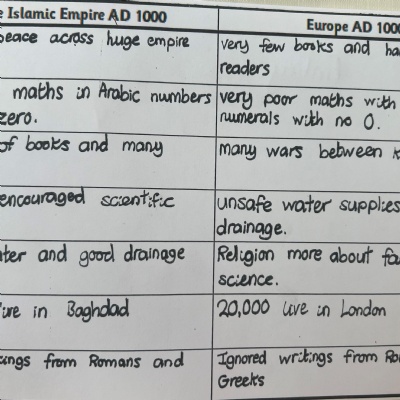 Islamic Empire AD 1000
peace across huge empire
maths in Arabic numbers
zero.
of books and many
encouraged scientific
and good drainage
in Baghdad
from Romans and
Europe AD 1000
very few books and
readers
very poor maths with
numerals with no 0.
many wars between
unsafe water supplies
drainage.
Religion more about
science.
20,000 live in London
Ignored writings from
Greeks